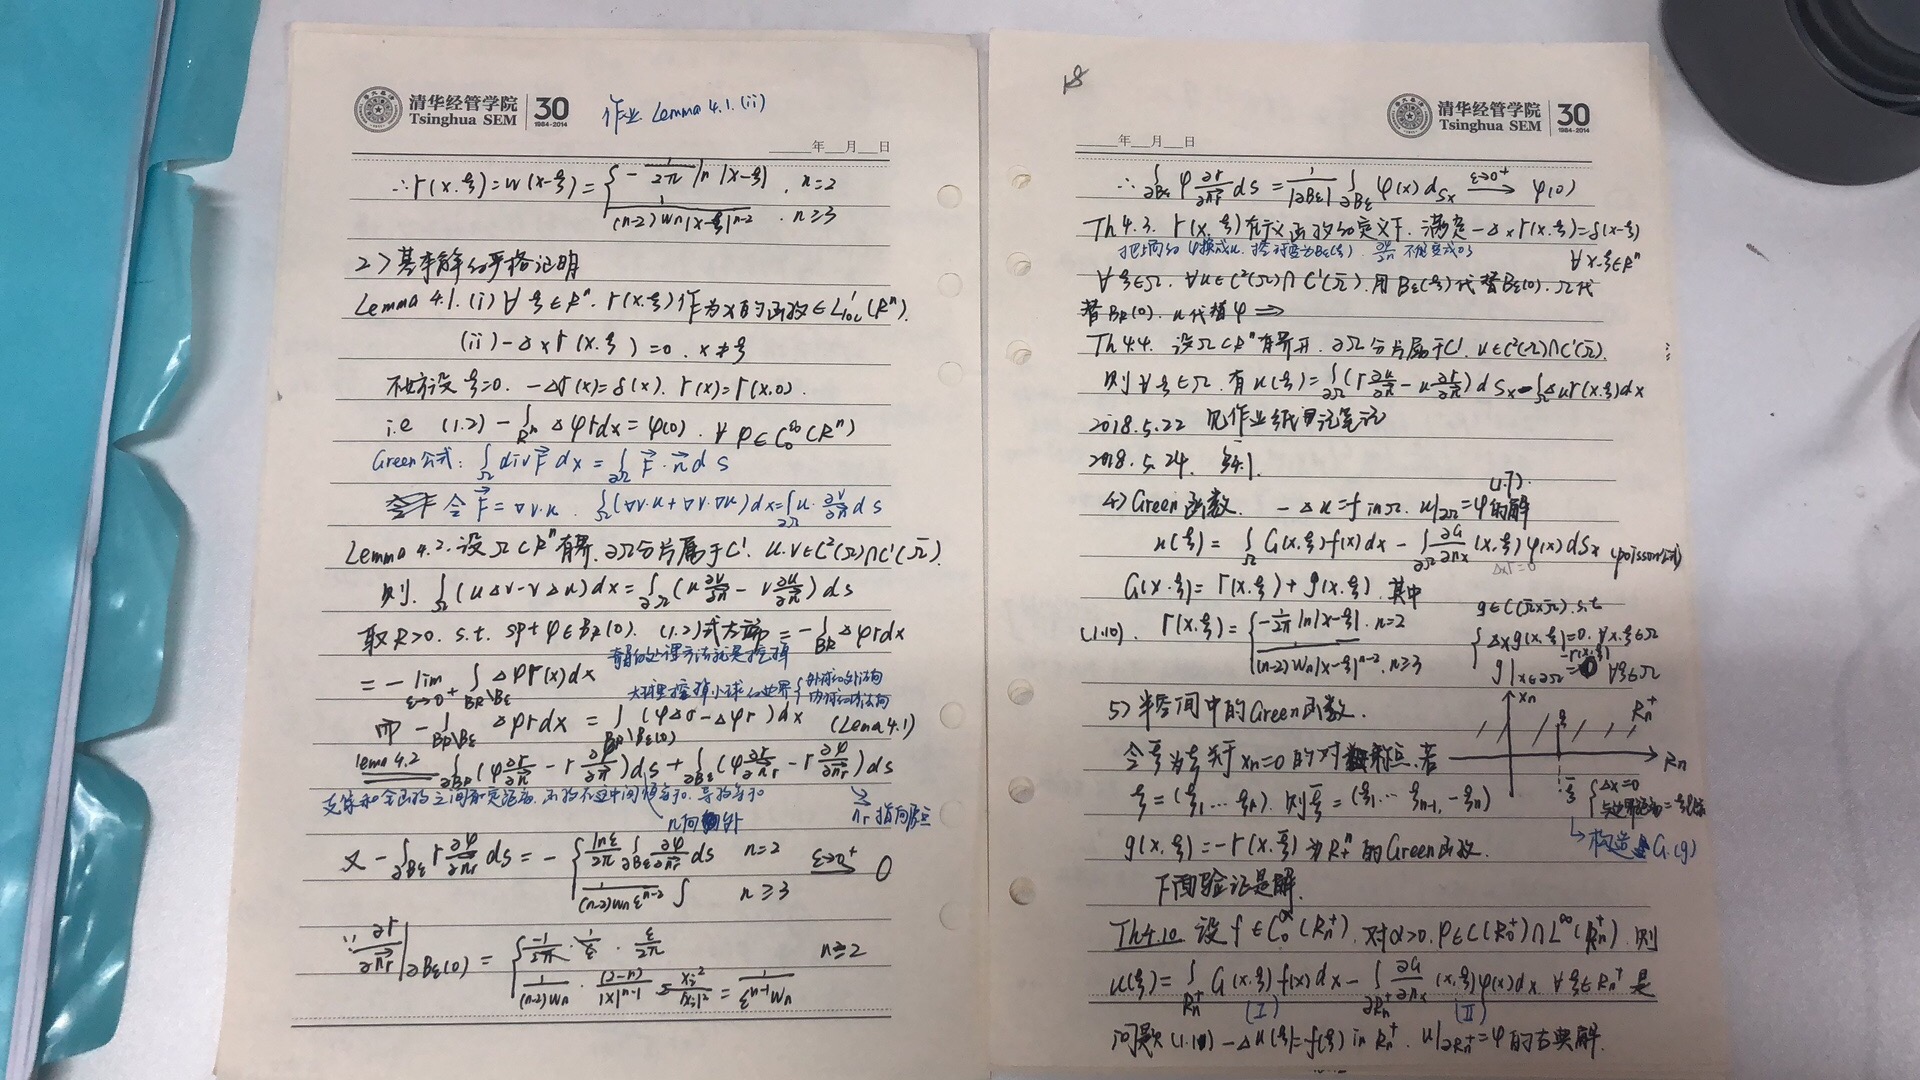 清华经管学院 30
Tsinghua SEM 1984-2014
作业 Lemma 4.1.(ii)
年 月 日
∴Γ(x.ξ)=w(x-ξ)= { -1/2π ln|x-ξ| , n=2
1/((n-2)Wn|x-ξ|^(n-2)) . n≥3
2>基本解的严格证明
Lemma 4.1.(i) ∀ ξ∈R^n. Γ(x.ξ)作为x的函数∈L^1_loc(R^n).
(ii) -Δx Γ(x.ξ)=0. x≠ξ
不妨设 ξ=0. -ΔΓ(x)=δ(x). Γ(x)=Γ(x,0).
i.e (1.2) -∫_{R^n} ΔφΓdx=φ(0). ∀ φ∈C_0^∞(R^n)
Green公式: ∫_Ω div F⃗ dx = ∫_{∂Ω} F⃗·n⃗ ds
令 F⃗=∇v·u. ∫_Ω(∇v·u+∇v·∇u)dx=∫_{∂Ω} u·∂v/∂n⃗ ds
Lemma 4.2. 设Ω⊂R^n有界. ∂Ω分片属于C^1. u.v∈C^2(Ω)∩C^1(Ω̄).
则. ∫_Ω(uΔv-vΔu)dx=∫_{∂Ω}(u ∂v/∂n⃗ - v ∂u/∂n⃗)ds
取R>0. s.t. spt φ∈B_R(0). (1.2)式左端=-∫_{B_R} ΔφΓdx
奇的处理方法就是挖掉
= -lim_{ε→0+} ∫_{B_R\B_ε} ΔφΓ(x)dx
大球里挖掉小球的边界 { 外球的外法向
而 -∫_{B_R\B_ε} ΔφΓdx = ∫_{B_R\B_ε(0)} (φΔΓ-ΔφΓ)dx (Lema 4.1)
lema 4.2 ∫_{∂B_R}(φ ∂Γ/∂n⃗ - Γ ∂φ/∂n⃗)ds + ∫_{∂B_ε}(φ ∂Γ/∂n⃗r - Γ ∂φ/∂n⃗r)ds
nr指向原点
又 -∫_{∂B_ε} Γ ∂φ/∂n⃗r ds = - { lnε/2π ∫_{∂B_ε} ∂φ/∂n⃗r ds n=2
1/((n-2)Wn ε^(n-2)) ∫ n≥3 ε→0+ 0
∵ ∂Γ/∂n⃗r |_{∂B_ε(0)} = { -1/2π · 1/ε · ε/2π n=2
1/((n-2)Wn) · (2-n)/|x|^(n-1) Σ xi²/|xi|² = 1/(ε^(n-1)Wn)
清华经管学院 30
Tsinghua SEM 1984-2014
年 月 日
∴ ∫_{∂B_ε} φ ∂Γ/∂n⃗r ds = 1/|∂B_ε| ∫_{∂B_ε} φ(x)dSx ε→0+ φ(0)
Th 4.3. Γ(x,ξ)在广义函数的定义下. 满足 -ΔxΓ(x.ξ)=δ(x-ξ)
∀ x.ξ∈R^n
∀ ξ∈Ω. ∀u∈C^2(Ω)∩C^1(Ω̄). 用B_ε(ξ)代替B_ε(0). Ω代
替B_R(0). u代替φ ⟹
Th 4.4. 设Ω⊂R^n有界开. ∂Ω分片属于C^1. u∈C^2(Ω)∩C^1(Ω̄).
则∀ξ∈Ω. 有u(ξ)=∫_{∂Ω}(Γ ∂u/∂n⃗ - u ∂Γ/∂n⃗)dSx-∫_Ω ΔuΓ(x.ξ)dx
2018.5.22 见作业纸记笔记
2018.5.24.
4>Green函数. -Δu=f in Ω. u|_{∂Ω}=φ的解
u(ξ) = ∫_Ω G(x.ξ)f(x)dx - ∫_{∂Ω} ∂G/∂nx (x.ξ)φ(x)dSx (poisson公式)
ΔxΓ=0
G(x.ξ)=Γ(x.ξ)+g(x.ξ). 其中
g∈C(Ω̄×Ω̄).s.t
(1.10). Γ(x.ξ)= { -1/2π ln|x-ξ|. n=2
1/((n-2)Wn|x-ξ|^(n-2)). n≥3
{ Δxg(x.ξ)=0. ∀x.ξ∈Ω
g|_{x∈∂Ω} = -Γ(x.ξ) ∀ξ∈Ω
5> 半空间中的Green函数.
xn R_n^+ ξ Rn ξ̄
令ξ̄为ξ关于xn=0的对称点. 若
ξ=(ξ1...ξn). 则ξ̄=(ξ1...ξn-1,-ξn)
{ Δx=0
→构造G.(g)
g(x.ξ)=-Γ(x.ξ̄) 为R_+^n的Green函数.
下面验证是解.
Th4.10 设f∈C_0^α(R_n^+). 对α>0. φ∈C(R_0^+)∩L^∞(R_n^+). 则
u(ξ)= ∫_{R_n^+} G(x.ξ)f(x)dx - ∫_{∂R_n^+} ∂G/∂nx (x.ξ)φ(x)dx ∀ξ∈R_n^+ 是
(I) (II)
问题(1.10) -Δu(ξ)=f(ξ) in R_n^+. u|_{∂R_n^+}=φ的古典解.